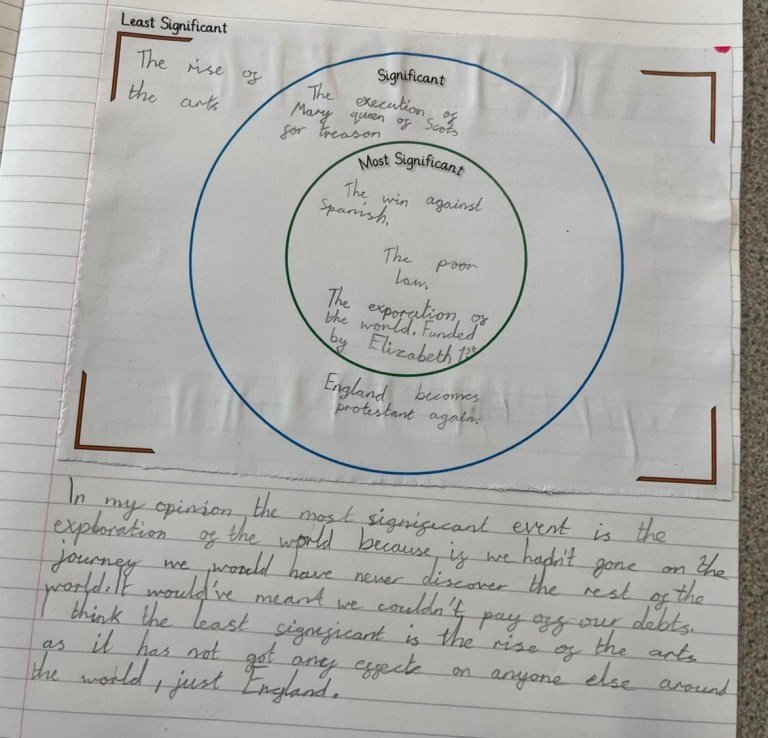 Least Significant
The rise of
the arts
Significant
The execution of
Mary queen of Scots
for treason
Most Significant
The win against
Spanish,
The poor
law,
The exporation of
the world. Funded
by Elizabeth 1st
England becomes
protestant again.
In my opinion the most significant event is the
exploration of the world because, if we hadn't gone on the
journey we would have never discover the rest of the
world. It would've meant we couldn't pay off our debts.
I think the least significant is the rise of the arts
as it has not got any effects on anyone else around
the world, just England.